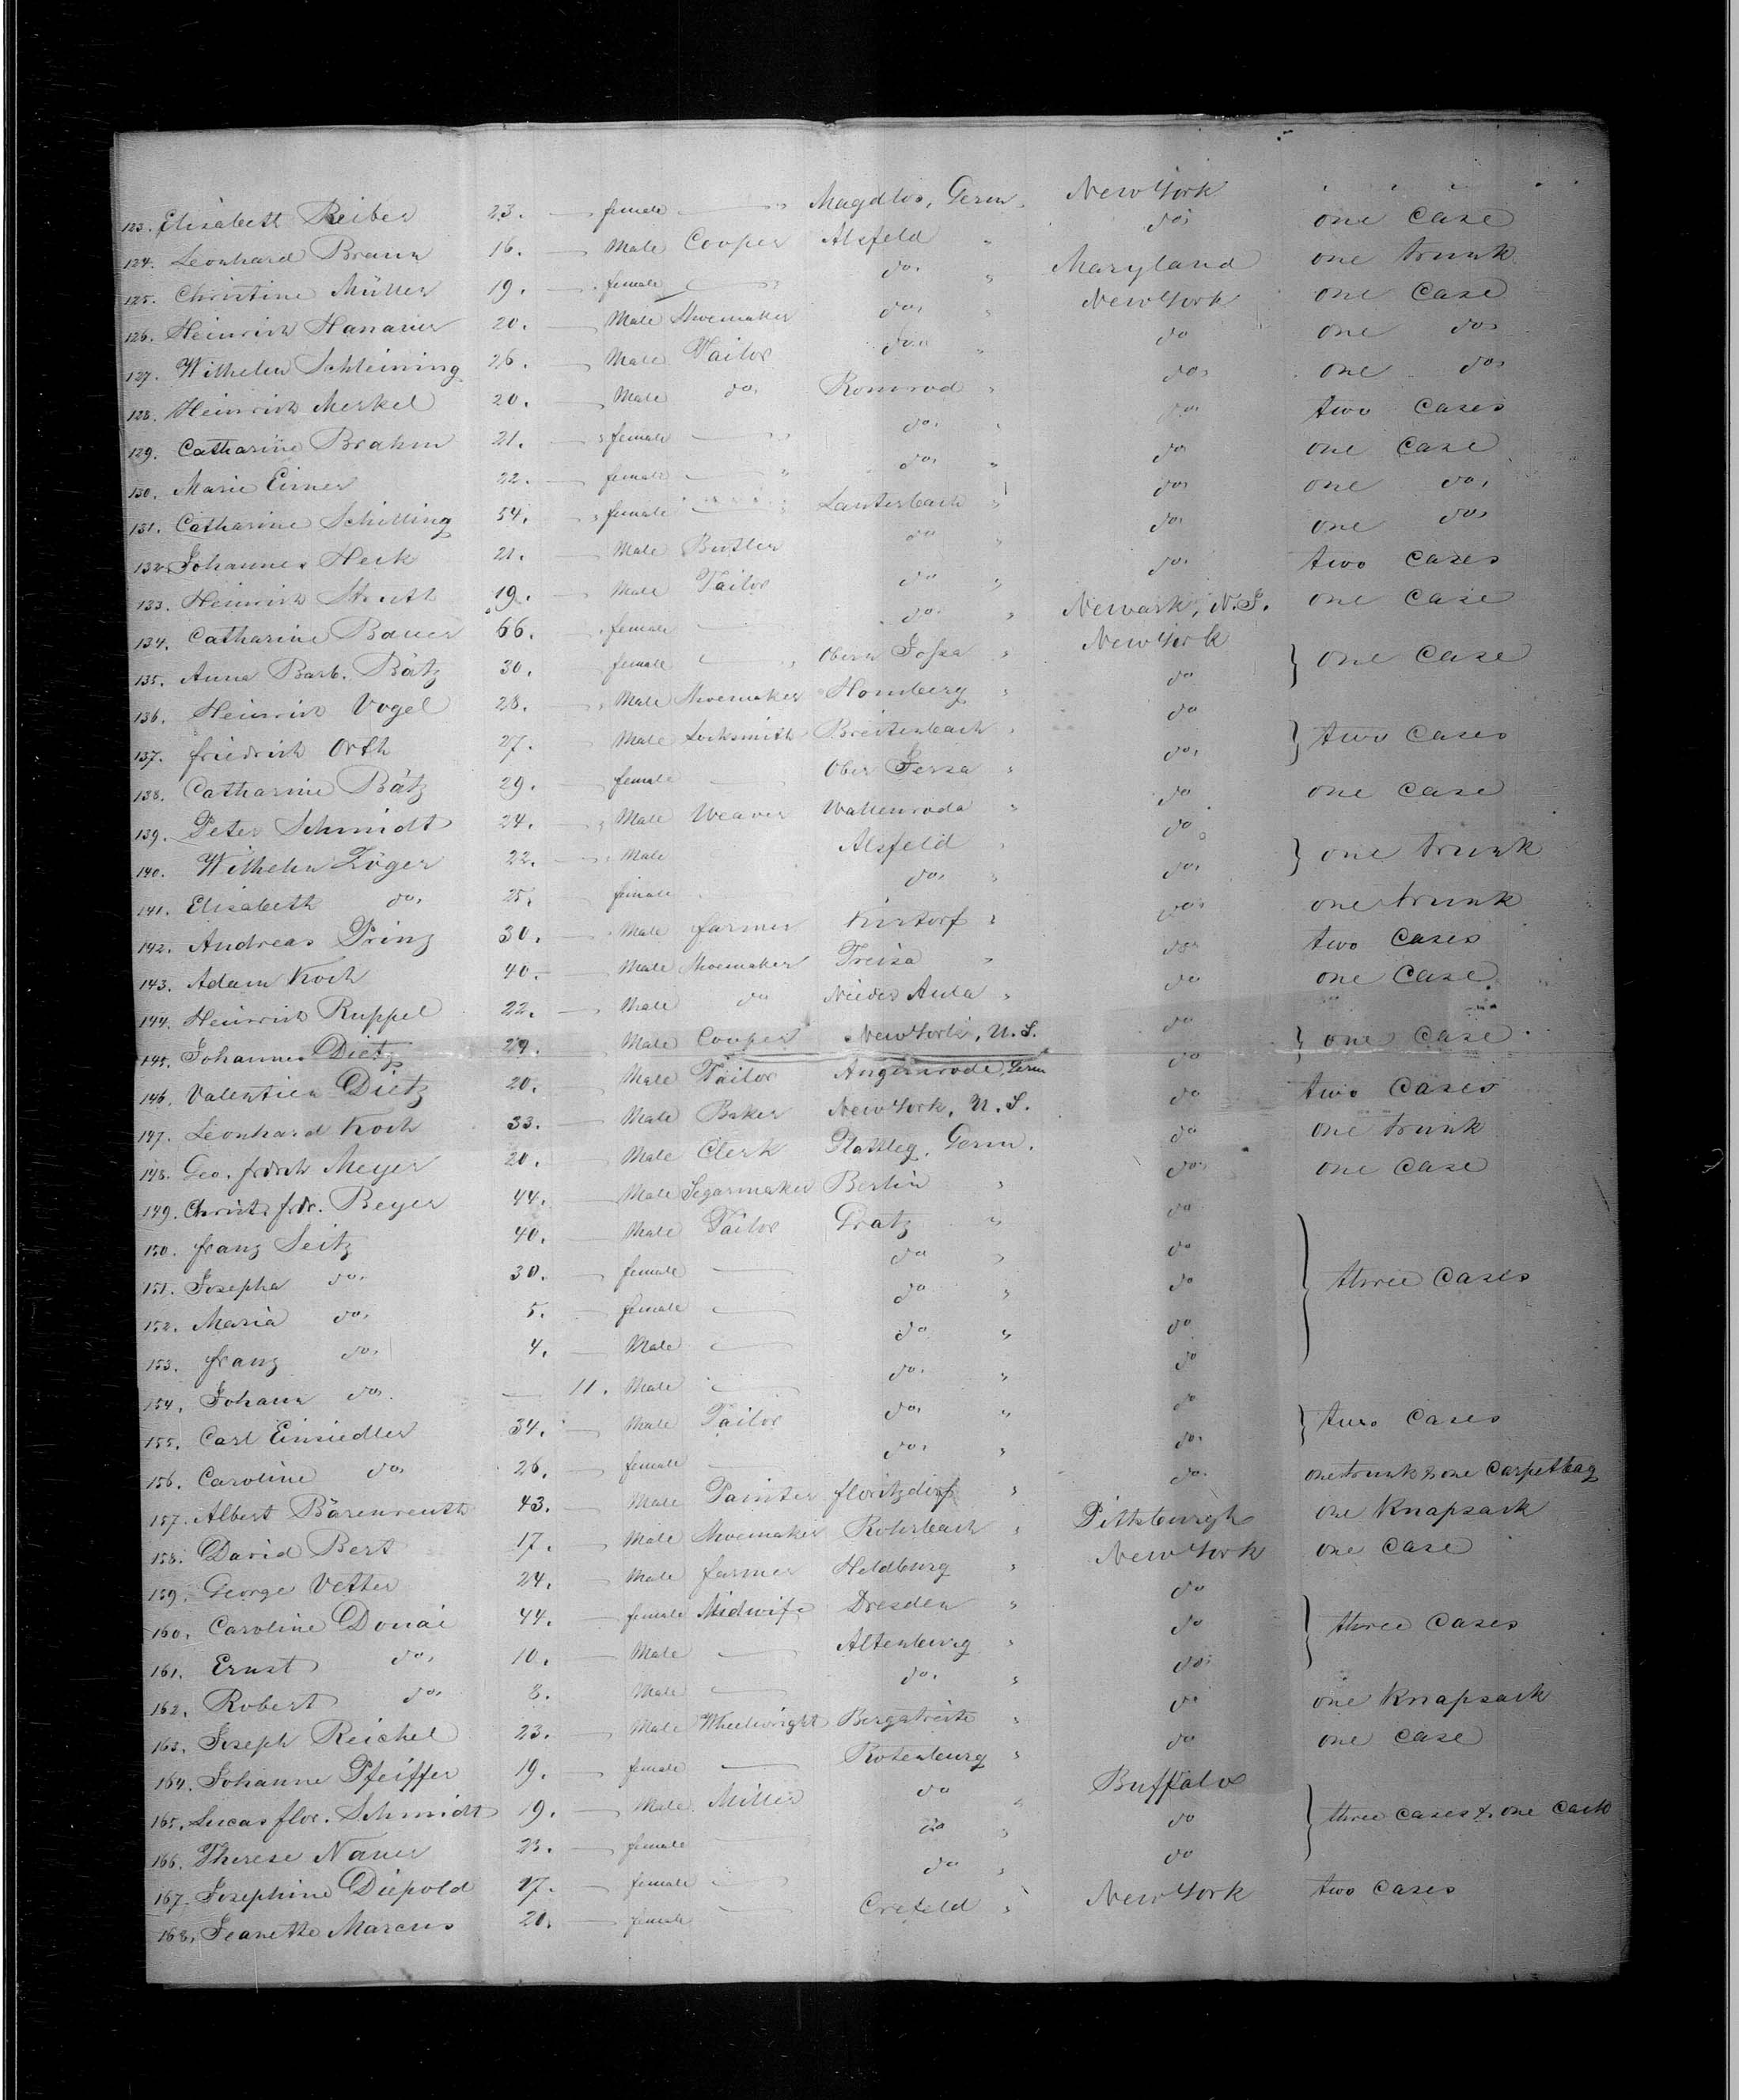 123. Elisabeth Reiber 23. female Magdlos, Germ. New York
124. Leonhard Braun 16. Male Cooper Alsfeld " do. one Case
125. Christine Müller 19. female do. " Maryland one trunk
126. Heinrich Hanauer 20. Male Shoemaker do. " New York one Case
127. Wilhelm Schleining 26. Male Tailor do. " do one do.
128. Heinrich Merkel 20. Male do. Romrod " do. one do.
129. Catharine Brahm 21. female do. " do. two Cases
130. Marie Eirner 22. female do. " do. one Case
131. Catharine Schilling 54. female Lauterbach " do. one do.
132. Johannes Heck 21. Male Butler do " do. one do.
133. Heinrich 19. Male Tailor do " do. two Cases
134. Catharine Bauer 66. female do. " Newark, N.J. one Case
135. Anna Barb. Bätz 30. female Obern Jossa " New York } one Case
136. Heinrich Vogel 28. Male Shoemaker Homberg " do
137. friedrich Orth 27. Male Locksmith Breitenbach " do } two Cases
138. Catharine Bätz 29. female Ober Jossa " do.
139. Peter Schmidt 24. Male Weaver Wallenroda " do one Case
140. Wilhelm Zöger 22. Male Alsfeld " do. } one trunk
141. Elisabeth do. 25. female do. " do.
142. Andreas Prinz 30. Male farmer Kirtorf " do. one trunk
143. Adam Koch 40. Male Shoemaker Treisa " do. two Cases
144. Heinrich Ruppel 22. Male do Nieder Aula " do one Case
145. Johannes Dietz 29. Male Cooper New York, U.S. do } one Case
146. Valentien Dietz 20. Male Tailor Angenrode, Germ do
147. Leonhard Koch 33. Male Baker New York, U.S. do two Cases
148. Geo. frdrch Meyer 20. Male Clerk Germ. do one trunk
149. Christ. frdr. Beyer 44. Male Segarmaker Berlin " do. one Case
150. franz Seitz 40. Male Tailor Gratz " do
151. Josepha do. 30. female do " do } three Cases
152. Maria do. 5. female do " do
153. franz do. 4. Male do " do
154. Johann do. 11. Male do. " do
155. Carl Einsiedler 34. Male Tailor do. " do } two Cases
156. Caroline do. 26. female do. " do.
157. Albert Bärenreuth 43. Male Painter floritzdorf " do. one trunk & one Carpetbag
158. David Bert 17. Male Shoemaker Rohrbach " Pittsburgh one Knapsack
159. George Vetter 24. Male farmer Heldburg " New York one Case
160. Caroline Douai 44. female Midwife Dresden " do } three Cases
161. Ernst do. 10. Male Altenburg " do
162. Robert do. 8. Male do. " do.
163. Joseph Reichel 23. Male Wheelwright " do one Knapsack
164. Johanne Pfeiffer 19. female Rotenburg " do one Case
165. Lucas flor. Schmidt 19. Male Miller do " Buffalo } three Cases & one Cask
166. Therese Nauer 23. female do " do
167. Josephine Diepold 17. female do " do
168. Jeanette Marcus 20. female Crefeld " New York two Cases